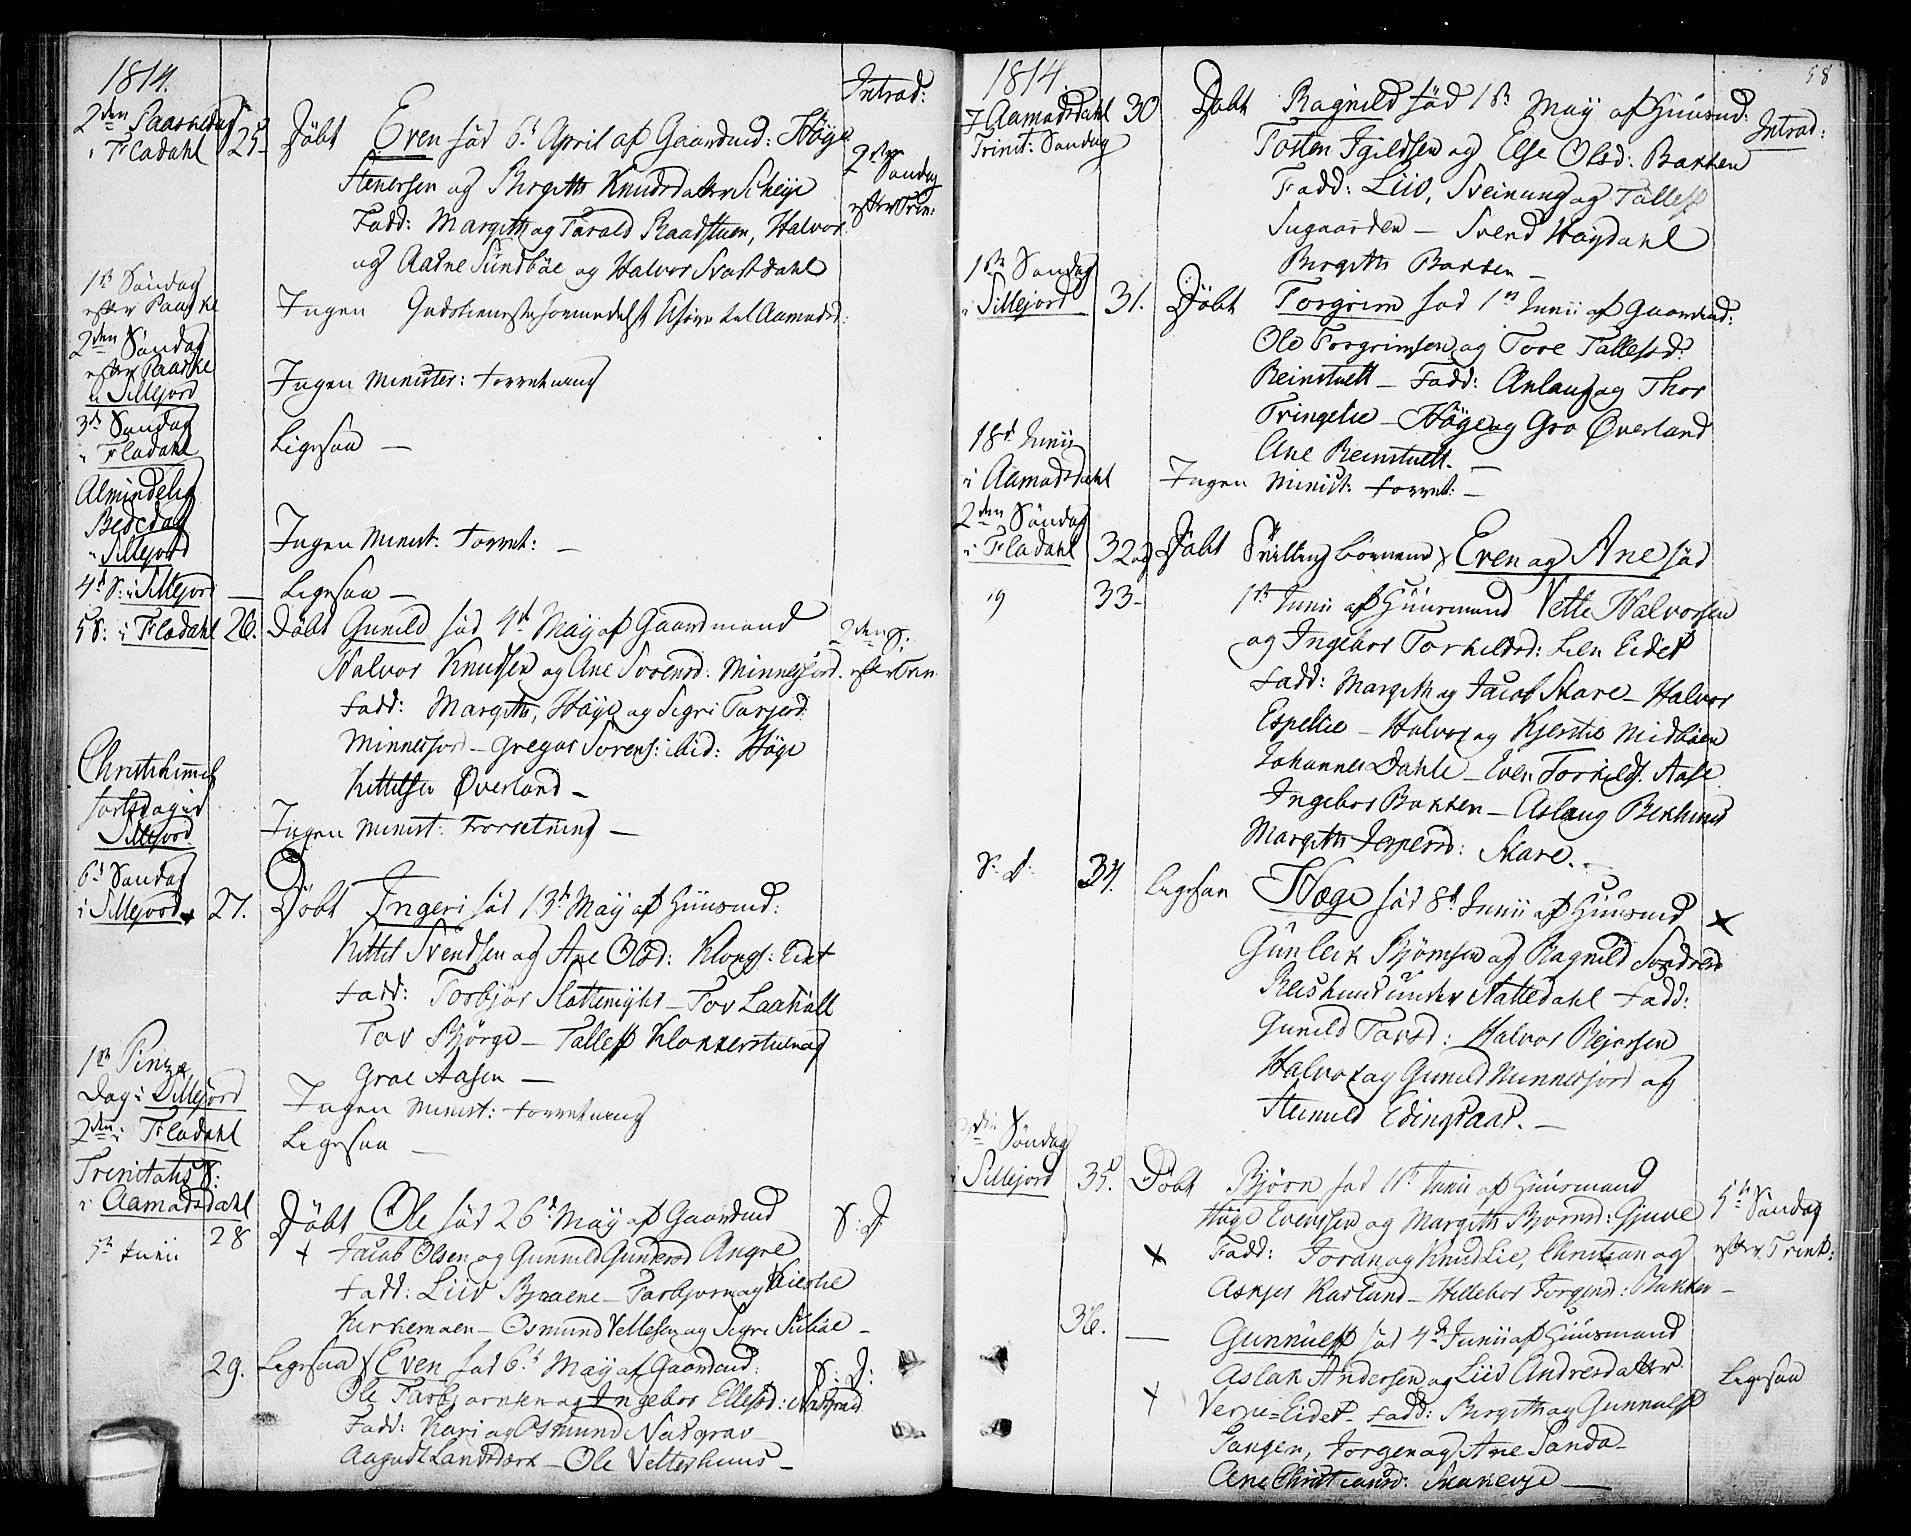 1814.
Introd:
2den Paaskedag
i Fladahl 25. Døbt Even fød 6t April af Gaardmd: Høge
Stenersen og Birgith Knudsdatter Scheije
2den Søndag
efter Trin:
Fadd: Margith og Tarald Raadstuen, Halvor
og Aadne Sundbøe og Halvor Svartdahl
1ste Søndag
efter Paaske
Ingen Gudstieneste formedelst Aamodsd:
2den Søndag
efter Paaske
i Sillejord
Ingen Minister: Forretning
3d Søndag
i Fladahl
Ligesaa —
Almindelig
Bededag
i Sillejord
Ingen Minist: Forret: —
4d S: i Sillejord — Ligesaa —
5 S: i Fladahl 26. Døbt Gunild fød 4d May af Gaardmand
2den S:
Halvor Knudsen og Ane Sorensd: Minnesjord.
efter Trin
Fadd: Margith, Høge og Sigri Tarjesd:
Minnesjord — Gregar Sorens: ibid: Høge
Kittelsen Øverland —
Christi himmel
fartsdag i
Sillejord
Ingen Minist: Forretning —
6d Søndag
i Sillejord 27. Døbt Ingeri fød 13d May af Huusmd:
Kittil Svendsen og Ane Olsd: Klongs: Eidet
Fadd: Torbjør Slattemyhr — Tov Laahall
Tov Bjørge — Tallef Klokkerstuen og
Groe Aasen —
1ste Pinze
Dag i Sillejord
Ingen Minist: Forretning
2den i Fladahl
Ligesaa —
Trinitatis S:
i Aamodsdahl
28 Døbt Ole fød 26d May af Gaardmd
S: D
5te Junii
Jacob Olsen og Gunnild Gundersd Angre
Fadd: Liiv Bjaaene — Tarbjørn og Kirstie
Kirkemoen — Osmund Vettesen og Sigri —
29. Ligesaa Even fød 6d May af Gaardmd:
S: D:
Ole Tarbjørnsen og Ingebor Ellefsd: Natgrav
Fadd: Kari og Osmund Natgrav
Aagudt Landsverk — Ole Vetterhuus —
58
1814.
i Aamodsdahl
Trinit: Søndag
30 Døbt Ragnild fød 1ste May af Huusmd:
Introd:
Tosten Igildsen og Else Olsd: Bakken
Fadd: Liiv, Sveinung og Tallef
Sugaarden — Svend Høydahl
Birgith Bakken —
1ste Søndag
i Sillejord 31. Døbt Torgrim fød 1ste Junii af Gaardmd:
Ole Torgrimsen og Tore Tallefsd:
Reinstuell — Fadd: Anlaug og Thor
Tringelie — Høge og Gro Øverland
Ane Reinstuell. —
18d Junii
i Aamodsdahl
Ingen Minist: Forret: —
2den Søndag
i Fladahl 32 og Døbt Tvilling børnene Even og Ane fød
33 1ste Junii af Huusmand Vette Halvorsen
og Ingebor Torkildsd: Lien Eidet
Fadd: Margith og Jacob Skare — Halvor
Espelie — Halvor og Kjerstie Midbøen
Johannes Dahle — Even Torkilds. Aase
Ingebor Bakken — Aslaug Bekhuus
Margith Jespersd: Skare. —
S: D. 34. Ligesaa Høge fød 8d Junii af Huusmd
Gunleik Bjørnsen og Ragnild Sondresd
under Nattedahl Fadd:
Gunild Tovsd: Halvor Rejersen
Halvor og Gunild Minnesjord og
Edingsaas. —
3die Søndag
i Sillejord 35. Døbt Bjørn fød Junii af Huusmand
Høge Evensen og Margith Bjørnsd: Gjuve
5te Søndag
efter Trinit:
Fadd: Joran og Knud Lie, Christian og
Askjer Karlund — Hellebor Torgersd: Bakken —
36. — Gunnulf fød 4d Junii af Huusmand
Aslak Andersen og Liiv Andersdatter
Ligesaa
Verpe-Eidet. Fadd: Birgith og Gunnulf
Tangen, Jorgen og Ane Sanda —
Ane Christensd: —